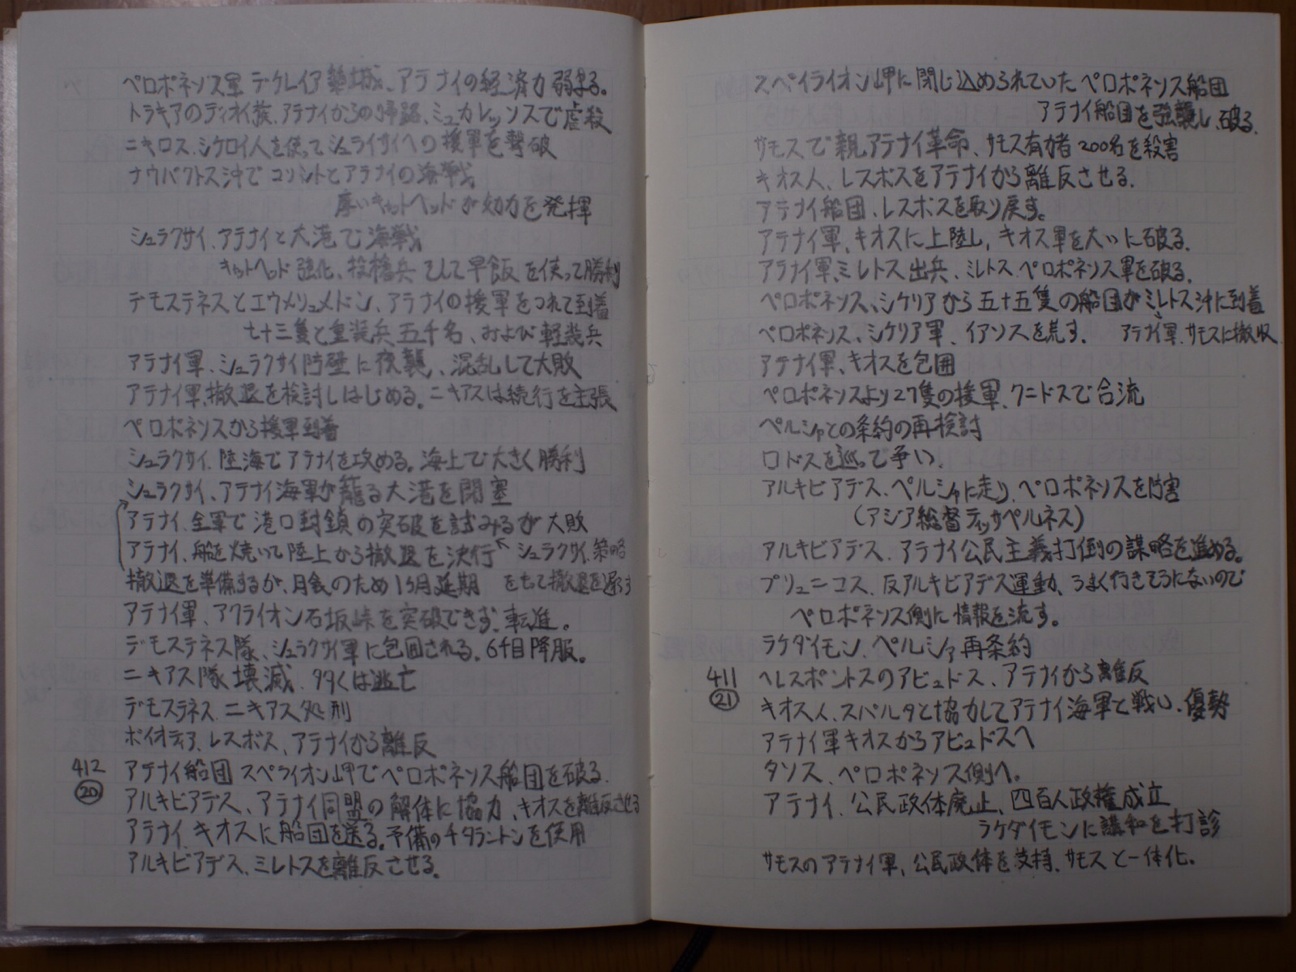 ペロポネソス軍 デケレイア築城、アテナイの経済力弱まる。
トラキアのディオイ族、アテナイからの帰路、ミュカレッソスで虐殺
ニキロス、シケロイ人を使ってシュライサイへの援軍を撃破
ナウパクトス沖でコリントとアテナイの海戦
厚いキャットヘッドが効力を発揮
シュラクサイ、アテナイと大港で海戦
キャットヘッド強化、投槍兵 そして早飯を使って勝利
デモステネスとエウメリュメドン、アテナイの援軍をつれて到着
七十三隻と重装兵五千名、および軽装兵
アテナイ軍、シュラクサイ防壁に夜襲、混乱して大敗
アテナイ軍、撤退を検討しはじめる。ニキアスは続行を主張
ペロポネソスから援軍到着
シュラクサイ、陸海でアテナイを攻める。海上で大きく勝利
シュラクサイ、アテナイ海軍が籠る大港を閉塞
アテナイ、全軍で港口封鎖の突破を試みるが大敗
アテナイ、船を焼いて陸上から撤退を決行 シュラクサイ、策略
撤退を準備するが、月食のため1ヶ月延期 をもて撤退を遅らす
アテナイ軍、アクライオン石坂峠を突破できず、転進。
デモステネス隊、シュラクサイ軍に包囲される。6千目降服。
ニキアス隊壊滅 多くは逃亡
デモステネス ニキアス処刑
ボイオティア、レスボス、アテナイから離反
412 アテナイ船団 スペライオン岬でペロポネソス船団を破る。
⑳ アルキビアデス、アテナイ同盟の解体に協力、キオスを離反させる
アテナイ、キオスに船団を送る。予備の千タラントンを使用
アルキビアデス、ミレトスを離反させる。
スペイライオン岬に閉じ込められていたペロポネソス船団
アテナイ船団を強襲し、破る。
サモスで親アテナイ革命、サモス有力者200名を殺害
キオス人、レスボスをアテナイから離反させる。
アテナイ船団、レスボスを取り戻す。
アテナイ軍、キオスに上陸し、キオス軍を大いに破る。
アテナイ軍、ミレトス出兵、ミレトス、ペロポネソス軍を破る。
ペロポネソス、シケリアから五十五隻の船団がミレトス沖に到着
ペロポネソス、シケリア軍、イアソスを荒す。 アテナイ軍、サモスに撤収
アテナイ軍、キオスを包囲
ペロポネソスより27隻の援軍、クニドスで合流
ペルシャとの条約の再検討
ロドスを巡って争い。
アルキビアデス、ペルシャに走り、ペロポネソスを阻害
(アジア総督ティッサペルネス)
アルキビアデス、アテナイ公民主義打倒の謀略を進める。
プリュニコス、反アルキビアデス運動、うまく行きそうにないので
ペロポネソス側に情報を流す。
ラケダイモン、ペルシア再条約
411 ヘレスポントスのアビュドス、アテナイから離反
㉑ キオス人、スパルタと協力してアテナイ海軍と戦い、優勢
アテナイ軍キオスからアビュドスへ
タソス、ペロポネソス側へ。
アテナイ、公民政体廃止、四百人政権成立
ラケダイモンに講和を打診
サモスのアテナイ軍、公民政体を支持、サモスと一体化。